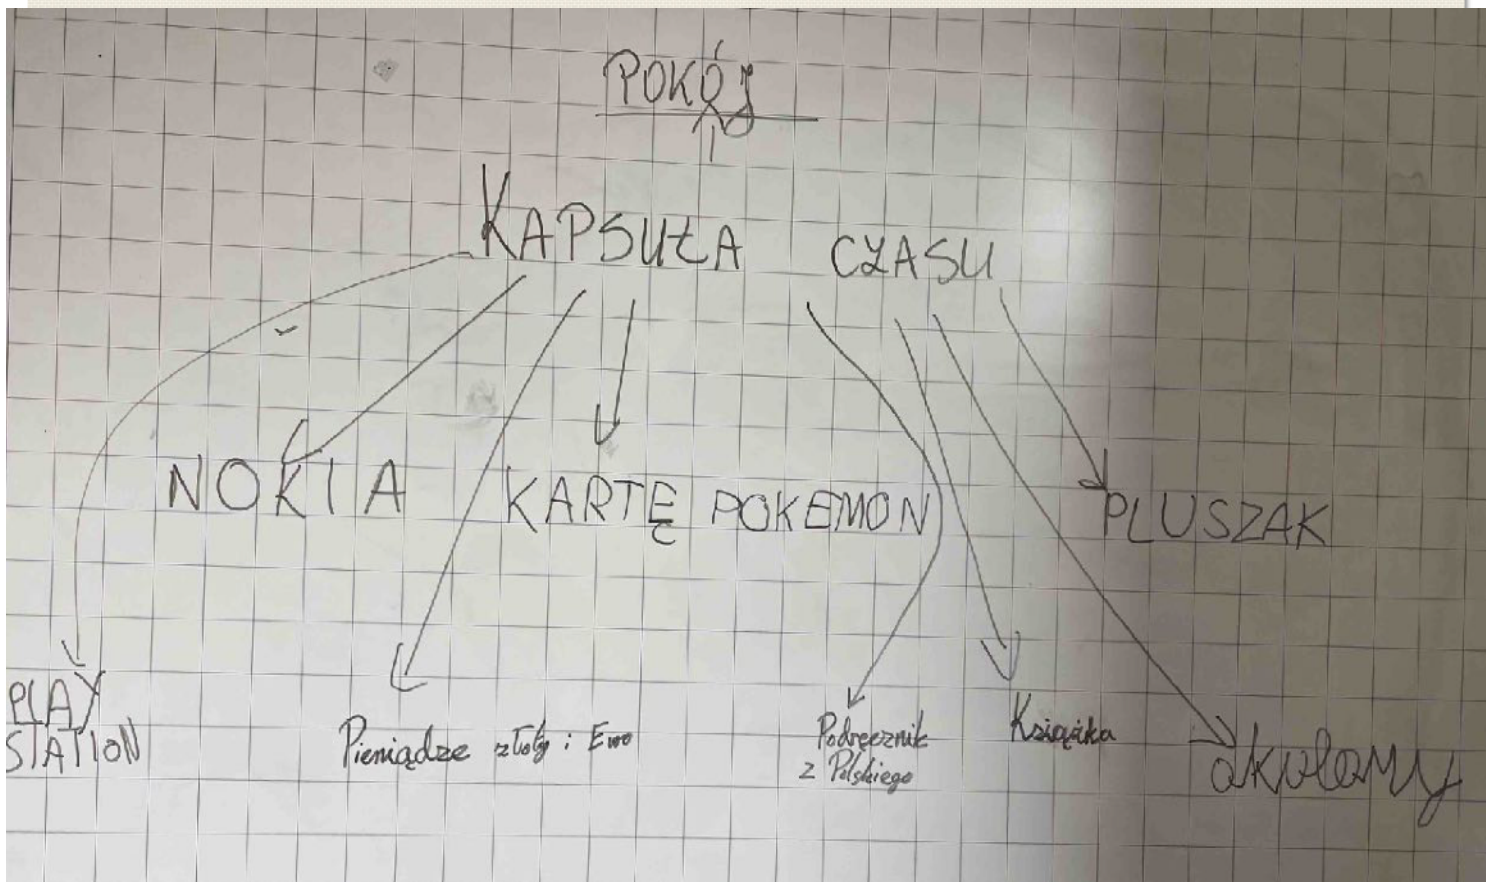 POKÓJ
KAPSUŁA CZASU
NOKIA
KARTĘ POKEMON
PLUSZAK
PLAY
STATION
Pieniądze złoty i Ewo
Podręcznik
z Polskiego
Książka
okulamy